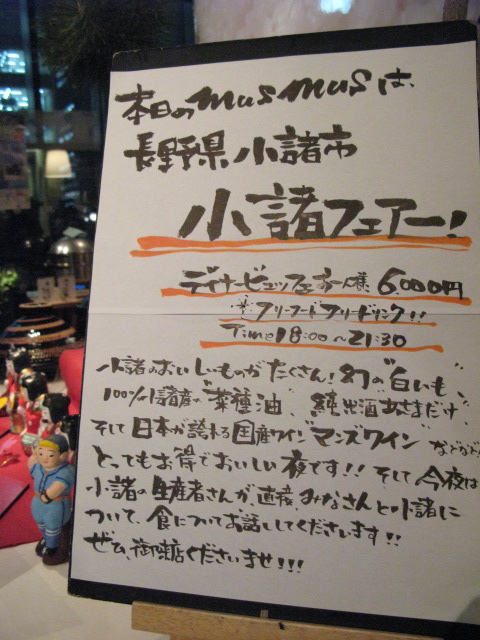 本日のmusmusは、
長野県小諸市
小諸フェアー!
ディナービュッフェお一人様 6,000円
※フリーフードフリードリンク!!
Time 18:00〜21:30
小諸のおいしいものがたくさん!幻の"白いも"
100%小諸産の"菜種油、純米酒あさまだけ"
そして日本が誇れる国産ワイン"マンズワイン"などなど
とってもお得でおいしい夜です!!そして今夜は
小諸の生産者さんが、直接、みなさんと小諸に
ついて、食についてお話ししてくださいます!!
ぜひ、御来店くださいませ!!!